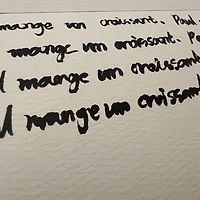 mange un croissant. Paul
mange un croissant.
mange un croissant
mange un croissant